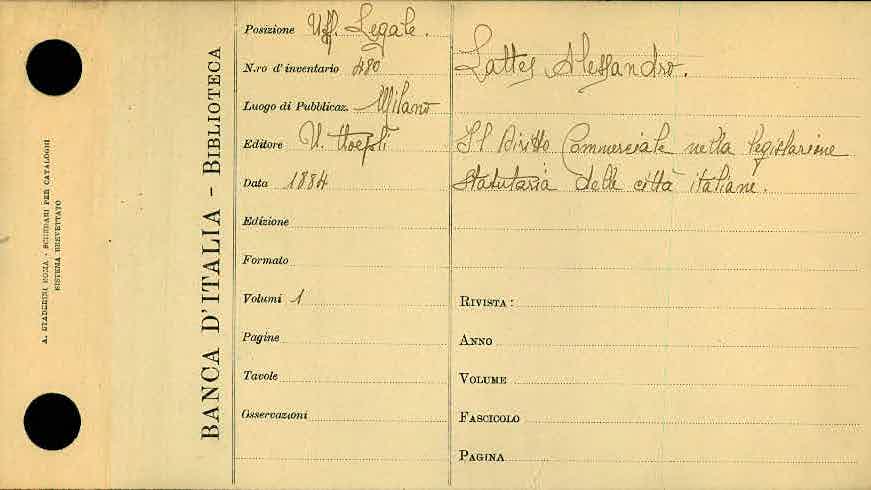 A. STADERINI ROMA - SCHEDARI PER CATALOGHI
SISTEMA BREVETTATO
BANCA D'ITALIA - BIBLIOTECA
Posizione Uff. Legale.
N.ro d'inventario 480
Luogo di Pubblicaz. Milano
Editore U. Hoepli
Data 1884
Edizione
Formato
Volumi 1
Pagine
Tavole
Osservazioni
Lattes Alessandro.
Il Diritto Commerciale nella legislazione
statutaria delle città italiane.
RIVISTA:
ANNO
VOLUME
FASCICOLO
PAGINA